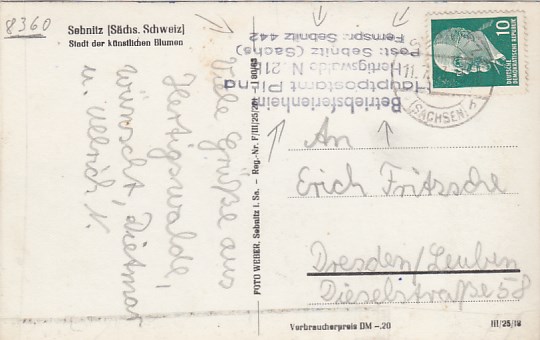 8360
Sebnitz [Sächs. Schweiz]
Stadt der künstlichen Blumen
Viele Grüße aus
Hertigswalde,
wünscht, Dietmar
u. Ullrich N.
FOTO WEBER, Sebnitz i. Sa. – Reg.-Nr. F/III/25/20
Betriebsferienheim
Hauptpostamt Pirna
Hertigswalde N. 21
Post: Sebnitz (Sachs)
Fernspr. Sebnitz 442
(SACHSEN)
10
DEUTSCHE
DEMOKRATISCHE REPUBLIK
An
Erich Fritzsche
Dresden/Leuben
Dieselstraße 58
Verbraucherpreis DM –,20
III/25/18